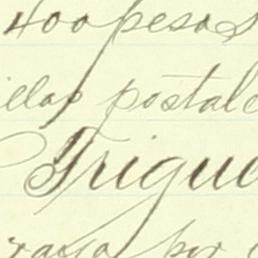 400 pesos
ellas postale
Trigue
raya por